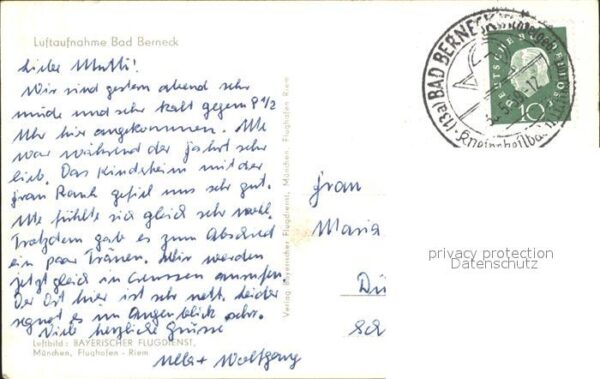 Luftaufnahme Bad Berneck
Liebe Mutti!
Wir sind gestern abend sehr
müde und sehr kalt gegen 9 1/2
Uhr hier angekommen. Ute
war während der Fahrt sehr
lieb. Das Kinderheim mit der
Frau Rank gefiel uns sehr gut.
Ute fühlte sich gleich sehr wohl.
Trotzdem gab es zum Abschied
ein paar Tränen. Wir werden
jetzt gleich in Creussen anrufen.
Der Ort hier ist sehr nett, leider
regnet es im Augenblick sehr.
Viele herzliche Grüsse
+ Wolfgang
Luftbild: BAYERISCHER FLUGDIENST,
München, Flughafen - Riem
Verlag Bayerischer Flugdienst, München, Flughafen Riem
(13a) BAD BERNECK
Kneippheilbad
DEUTSCHE BUNDESPOST
10
Frau
Maria
Dü
Sch
privacy protection
Datenschutz